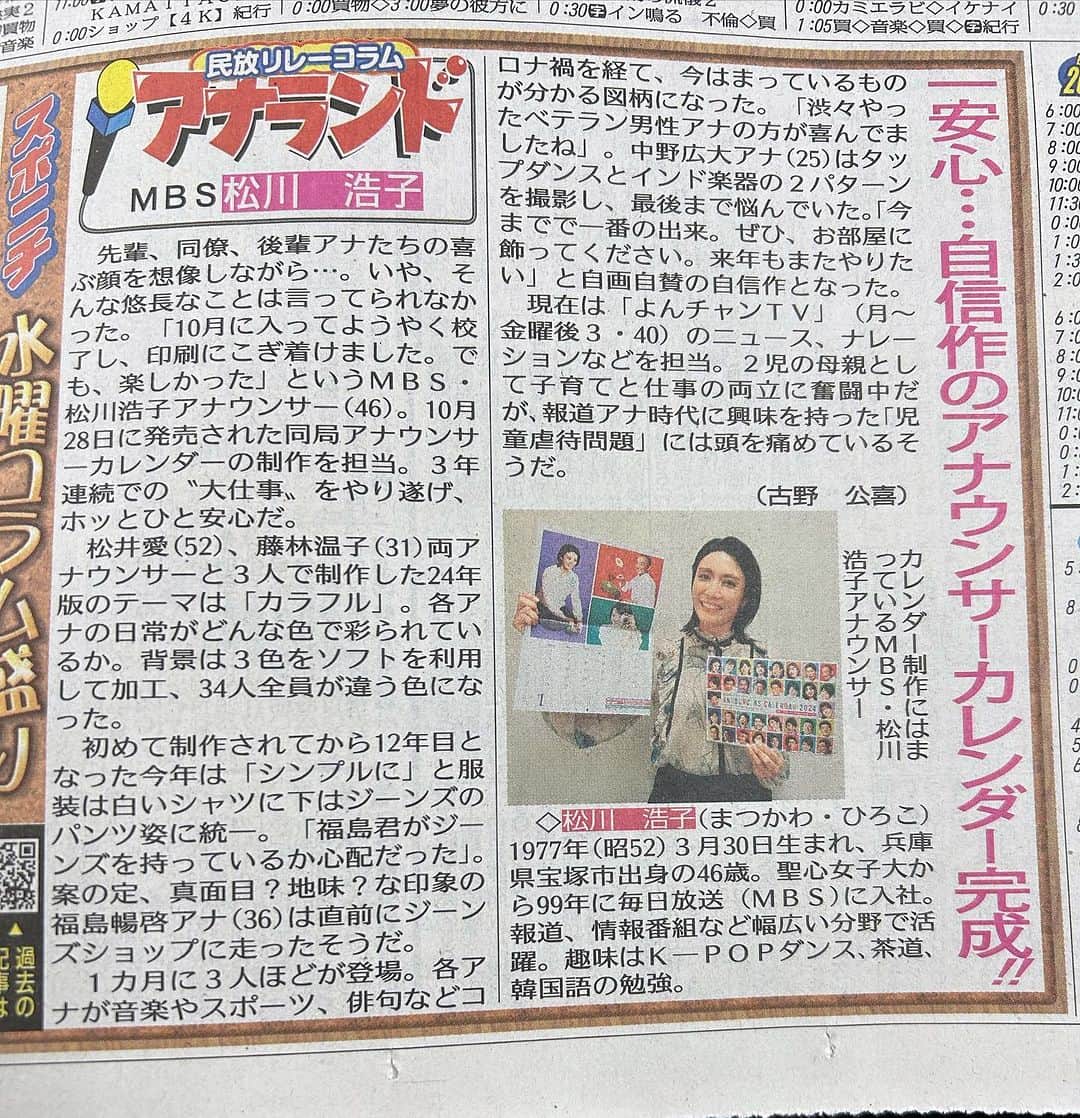 KAMAITA
0:00ショップ【4K】紀行
0:00買物◇3:00夢の彼方に
0:30字イン鳴る 不倫◇買
0:00カミエラビ◇イケナイ
1:05買◇音楽◇買◇字紀行
0:30
スポニチ
水曜コラム盛り
過去の
記事は
民放リレーコラム
アナランド
MBS松川 浩子
一安心…自信作のアナウンサーカレンダー完成!!
先輩、同僚、後輩アナたちの喜
ぶ顔を想像しながら…。いや、そ
んな悠長なことは言ってられなか
った。「10月に入ってようやく校
了し、印刷にこぎ着けました。で
も、楽しかった」というMBS・
松川浩子アナウンサー(46)。10月
28日に発売された同局アナウンサ
ーカレンダーの制作を担当。3年
連続での〝大仕事〟をやり遂げ、
ホッとひと安心だ。
松井愛(52)、藤林温子(31)両ア
ナウンサーと3人で制作した24年
版のテーマは「カラフル」。各ア
ナの日常がどんな色で彩られてい
るか。背景は3色をソフトを利用
して加工、34人全員が違う色にな
った。
初めて制作されてから12年目と
なった今年は「シンプルに」と服
装は白いシャツに下はジーンズの
パンツ姿に統一。「福島君がジー
ンズを持っているか心配だった」。
案の定、真面目?地味?な印象の
福島暢啓アナ(36)は直前にジーン
ズショップに走ったそうだ。
1カ月に3人ほどが登場。各ア
ナが音楽やスポーツ、俳句などコ
ロナ禍を経て、今はまっているもの
が分かる図柄になった。「渋々やっ
たベテラン男性アナの方が喜んでま
したね」。中野広大アナ(25)はタッ
プダンスとインド楽器の2パターン
を撮影し、最後まで悩んでいた。「今
までで一番の出来。ぜひ、お部屋に
飾ってください。来年もまたやりた
い」と自画自賛の自信作となった。
現在は「よんチャンTV」(月〜
金曜後3・40)のニュース、ナレー
ションなどを担当。2児の母親とし
て子育てと仕事の両立に奮闘中だ
が、報道アナ時代に興味を持った「児
童虐待問題」には頭を痛めているそ
うだ。
(古野 公喜)
カレンダー制作にはま
っているMBS・松川
浩子アナウンサー
ANNOUNCERS CALENDAR 2024
◇松川 浩子(まつかわ・ひろこ)
1977年(昭52)3月30日生まれ、兵庫
県宝塚市出身の46歳。聖心女子大か
ら99年に毎日放送(MBS)に入社。
報道、情報番組など幅広い分野で活
躍。趣味はK―POPダンス、茶道、
韓国語の勉強。